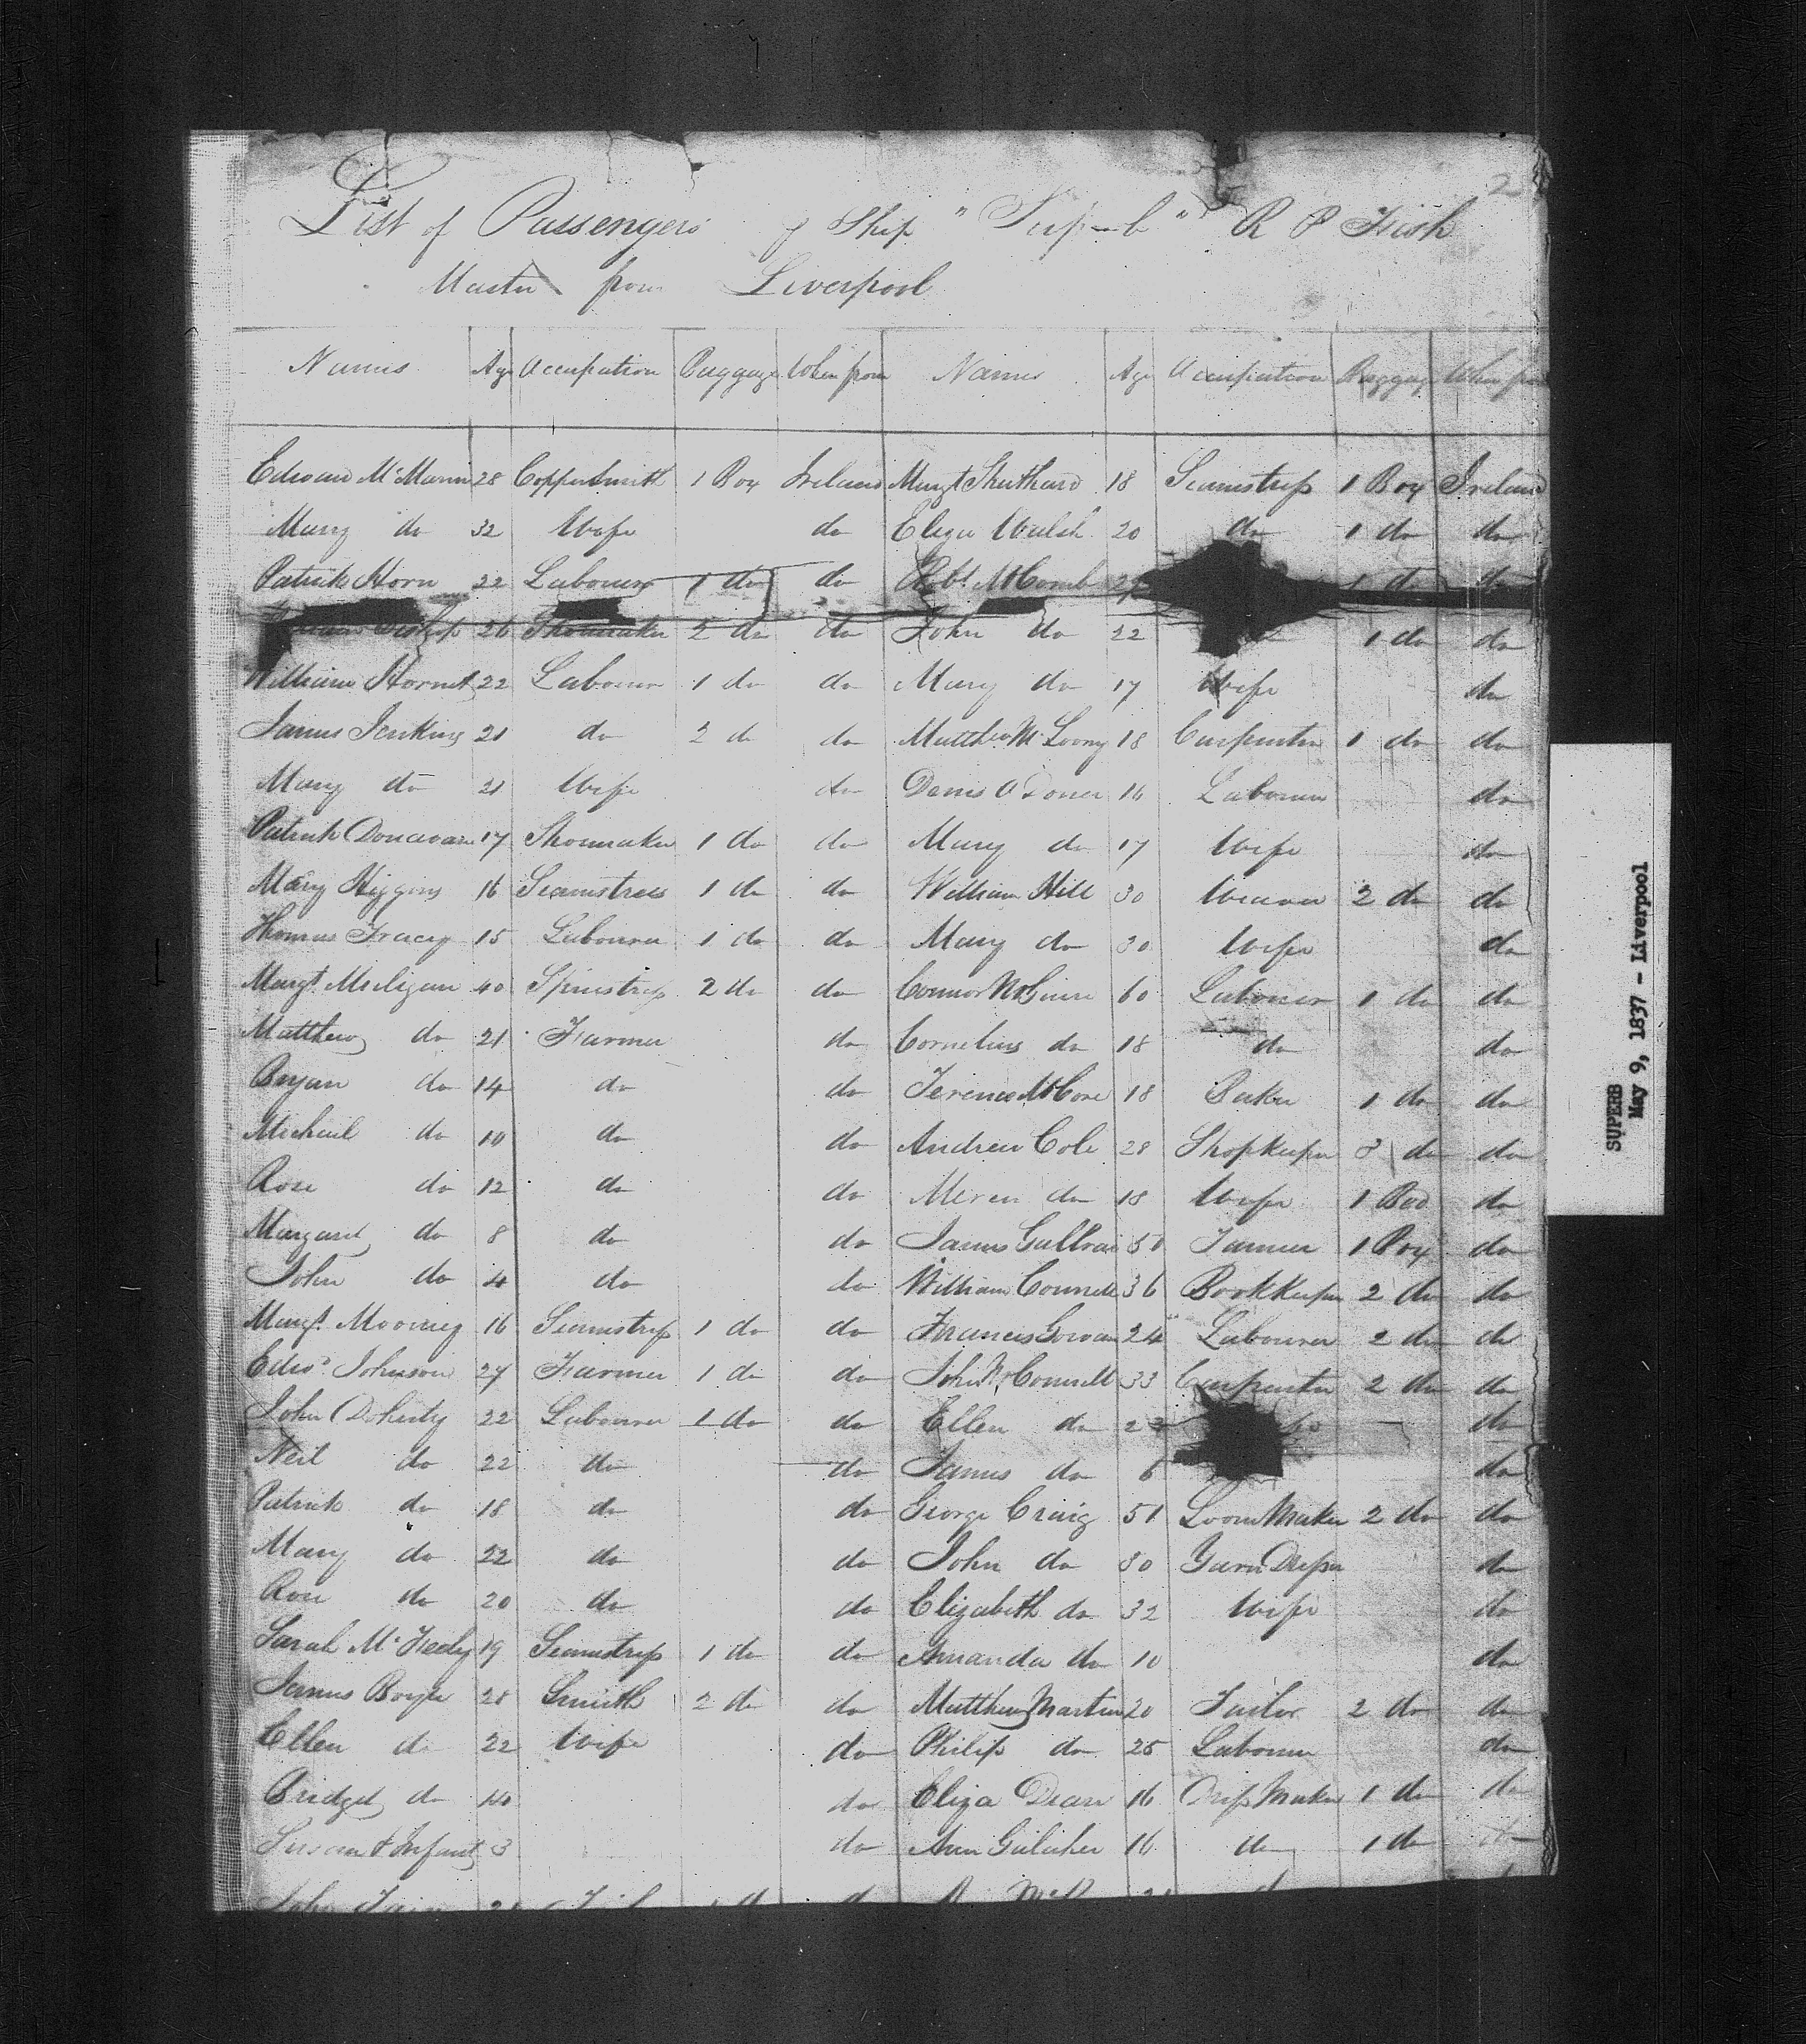 2
List of Passengers of Ship "Superb" R P Fish
Master from Liverpool
Names Age Occupation Baggage When from Names Age Occupation Baggage When from
Edward McMann 28 Coppersmith 1 Box Ireland Margt 18 Seamstress 1 Box Ireland
Mary do 32 Wife do Eliza Walsh 20 do 1 do do
Patrick Horn 22 Labourer 1 do do Robt McComb 1 do do
26 Shoemaker 2 do do John do 22 1 do do
William Hornet 22 Labourer 1 do do Mary do 17 Wife do
James Jenkins 21 do 2 do do Matthew McLoony 18 Carpenter 1 do do
Mary do 21 Wife do Denis Labourer do
Patrick Donavan 17 Shoemaker 1 do do Mary do 17 Wife do
Mary Higgins 16 Seamstress 1 do do William Hill 30 Weaver 2 do do
Thomas Tracey 15 Labourer 1 do do Mary do 30 Wife do
Margt Miligan 40 Spinstress 2 do do Connor McGuire 60 Labourer 1 do do
Matthew do 21 Farmer do Cornelius do 18 do do
Bryan do 14 do do Terence 18 Baker 1 do do
Micheal do 10 do do Andrew Cole 28 Shopkeeper 3 do do
Rose do 12 do do do 18 Wife 1 do
Margaret do 8 do do James 1 Box do
John do 4 do do William Connell 36 Bookkeeper 2 do do
Margt Mooney 16 Seamstress 1 do do Francis Gowan 24 Labourer 2 do do
Edwd Johnson 27 Farmer 1 do do John McConnell 33 Carpenter 2 do do
John Doherty 22 Labourer 1 do do Ellen do do
Neil do 22 do do James do 6 do
Patrick do 18 do do George Craig 51 Loom Maker 2 do do
Mary do 22 do do John do 30 Yarn Dresser do
Rose do 20 do do Elizabeth do 32 Wife do
Sarah McFeely 19 Seamstress 1 do do Amanda do 10 do
James Boyle 28 Smith 2 do do Matthew Martin 20 Tailor 2 do do
Ellen do 22 Wife do Philip do 25 Labourer do
Bridget do do Eliza Dean 16 Dress Maker 1 do do
Susan & Infant 3 do Ann Gulicher 16 do 1 do do
John
SUPERB
May 9, 1837 - Liverpool